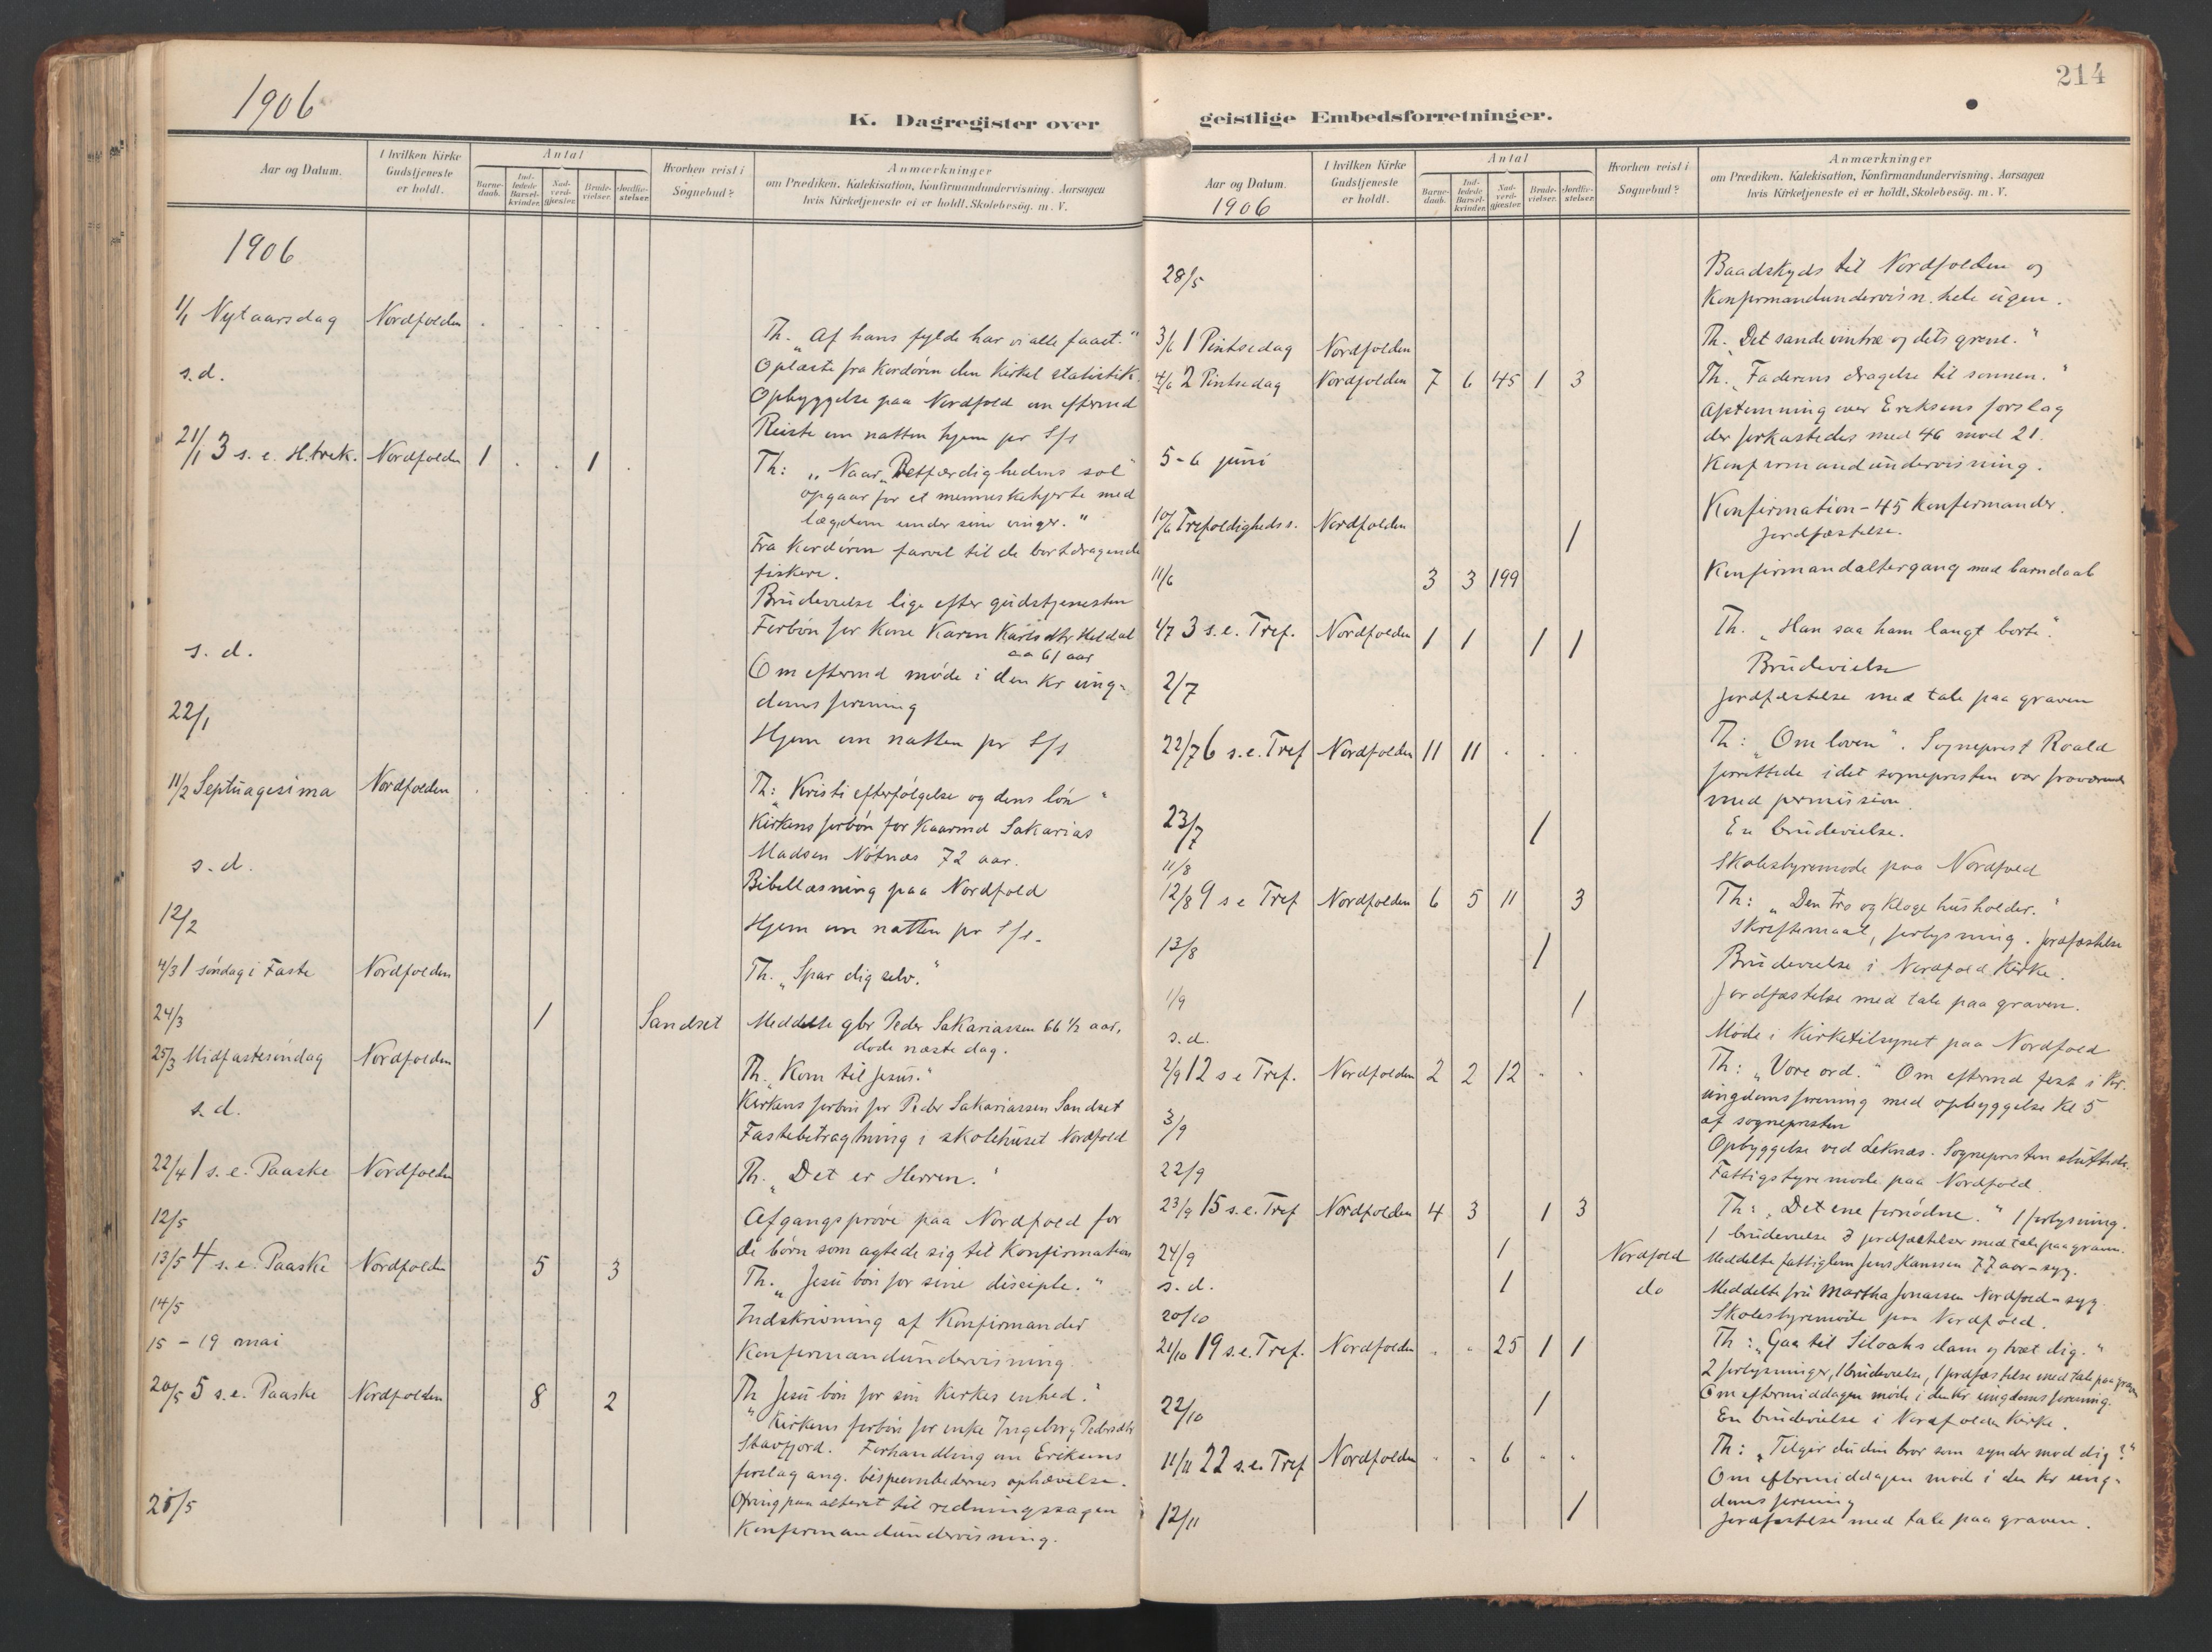 1906
K. Dagregister over
Aar og Datum.
I hvilken Kirke Gudstjeneste er holdt.
Antal
Barne-daab.
Ind-ledede Barsel-kvinder.
Nad-verd-gjester.
Brude-vielser.
Jordfæ-stelser.
Hvorhen reist i Sognebud?
Anmærkninger
om Prædiken. Katekisation, Konfirmandundervisning. Aarsagen
hvis Kirketjeneste ei er holdt. Skolebesøg. m. V.
1906
1/1 Nytaarsdag Nordfolden . . . . .
Th. "Af hans fylde har vi alle faaet."
s.d. Oplæste fra Kordören den Kirkel statistik.
Opbyggelse paa Nordfold om eftermd
Reiste om natten hjem pr S/s
21/1 3 s. e. H.trek. Nordfolden 1 . . 1 .
Th: "Naar Retfærdighedens sol
opgaar for et menneskehjerte med
lægdom under sine vinger."
Fra Kordören farvel til de bortdragende
fiskere.
Brudevielse lige efter gudstjenesten
Forbön for Kone Karen Karlsdtr Heldal
aa 61 aar
s. d. Om eftermd möde i den kr ung-
domsforening
22/1 Hjem om natten pr S/s
11/2 Septuagesima Nordfolden . . . . .
Th: "Kristi efterfölgelse og dens lön"
Kirkens forbön for Kaarmd Sakarias
Madsen Nötnæs 72 aar.
s. d. Bibellæsning paa Nordfold
12/2 Hjem om natten pr S/s.
4/3 1 söndag i Faste Nordfolden
Th. "Spar dig selv."
24/3 1 Sandset Meddelte gbr Peder Sakariassen 66 1/2 aar,
döde næste dag.
25/3 Midfastesöndag Nordfolden
Th. "Kom til Jesus."
Kirkens forbön for Peder Sakariassen Sandset
s. d. Fastebetragtning i skolehuset Nordfold
22/4 1 s. e. Paaske Nordfolden Th. "Det er Herren."
12/5 Afgangspröve paa Nordfold for
de börn som agtede sig til Konfirmation
13/5 4 s. e. Paaske Nordfolden 5 3 Th. "Jesu bön for sine disciple."
14/5 Indskrivning af Konfirmander
15 – 19 mai Konfirmandundervisning.
20/5 5 s. e. Paaske Nordfolden 8 2 Th "Jesu bön for sin Kirkes enhed."
Kirkens forbön for enke Ingeborg Pedersdtr
Stavfjord. Forhandling om Eriksens
forslag ang. bispeembedernes ophævelse.
Ofring paa alteret til redningssagen
25/5 Konfirmandundervisning.
214
geistlige Embedsforretninger.
Aar og Datum.
1906
I hvilken Kirke Gudstjeneste er holdt.
Antal
Barne-daab.
Ind-ledede Barsel-kvinder.
Nad-verd-gjester.
Brude-vielser.
Jordfæ-stelser.
Hvorhen reist i Sognebud?
Anmærkninger
om Prædiken. Katekisation, Konfirmandundervisning. Aarsagen
hvis Kirketjeneste ei er holdt. Skolebesøg. m. V.
28/5 Baadskyds til Nordfolden og
Konfirmandundervisn. hele ugen.
3/6 1 Pintsedag Nordfolden Th. "Det sande vintræ og dets grene."
4/6 2 Pintsedag Nordfolden 7 6 45 1 3 Th. "Faderens dragelse til sønnen."
Afstemning over Eriksens forslag
der forkastedes med 46 mod 21.
5-6 juni Konfirmandundervisning.
10/6 Trefoldigheds s. Nordfolden 1 Konfirmation – 45 Konfirmander.
Jordfæstelse.
11/6 3 3 199 Konfirmandaltergang med barndaab
1/7 3 s. e. Tref. Nordfolden 1 1 1 1 Th. "Han saa ham langt borte."
Brudevielse
2/7 Jordfæstelse med tale paa graven
22/7 6 s. e. Tref Nordfolden 11 11 . . . Th: "Om loven". Sogneprest Roald
forrettede idet sognepresten var fraværende
med permission.
23/7 1 En brudevielse.
11/8 Skolestyremöde paa Nordfold
12/8 9 s e Tref Nordfolden 6 5 11 3 Th: "Den tro og kloge husholder."
Skriftemaal, forlysning. Jordfæstelse
13/8 1 Brudevielse i Nordfold Kirke.
1/9 1 Jordfæstelse med tale paa graven.
s. d. Möde i Kirketilsynet paa Nordfold
2/9 12 s e Tref. Nordfolden 2 2 12 . . Th: "Vore ord." Om eftermd fest i Kr.
ungdomsforening med opbyggelse Kl 5
af sognepresten
3/9 Opbyggelse ved Leknæs. Sognepresten sluttede.
22/9 Fattigstyremöde paa Nordfold.
23/9 15 s. e. Tref Nordfolden 4 3 1 3 Th: "Det ene fornödne." 1 forlysning.
1 brudevielse 3 jordfæstelser med tale paa graven.
24/9 1 Nordfold Meddelte fattiglem Jens Hanssen 77 aar – syg.
s. d. 1 do Meddelte fru Martha Jonassen Nordfold – syg.
20/10 Skolestyremöde paa Nordfold.
21/10 19 s. e. Tref. Nordfolden . . 25 1 1 Th: "Gaa til Siloahs dam og tvæt dig."
2 forlysninger, 1 brudevielse, 1 jordfæstelse med tale paa graven
Om eftermiddagen möde i den kr ungdomsforening.
22/10 1 En brudevielse i Nordfolden Kirke.
11/11 22 s. e. Tref Nordfolden . . 6 . . Th: "Tilgir du din bror som synder mod dig?"
Om eftermiddagen möde i den kr ung-
domsforening
12/11 1 Jordfæstelse med tale paa graven.